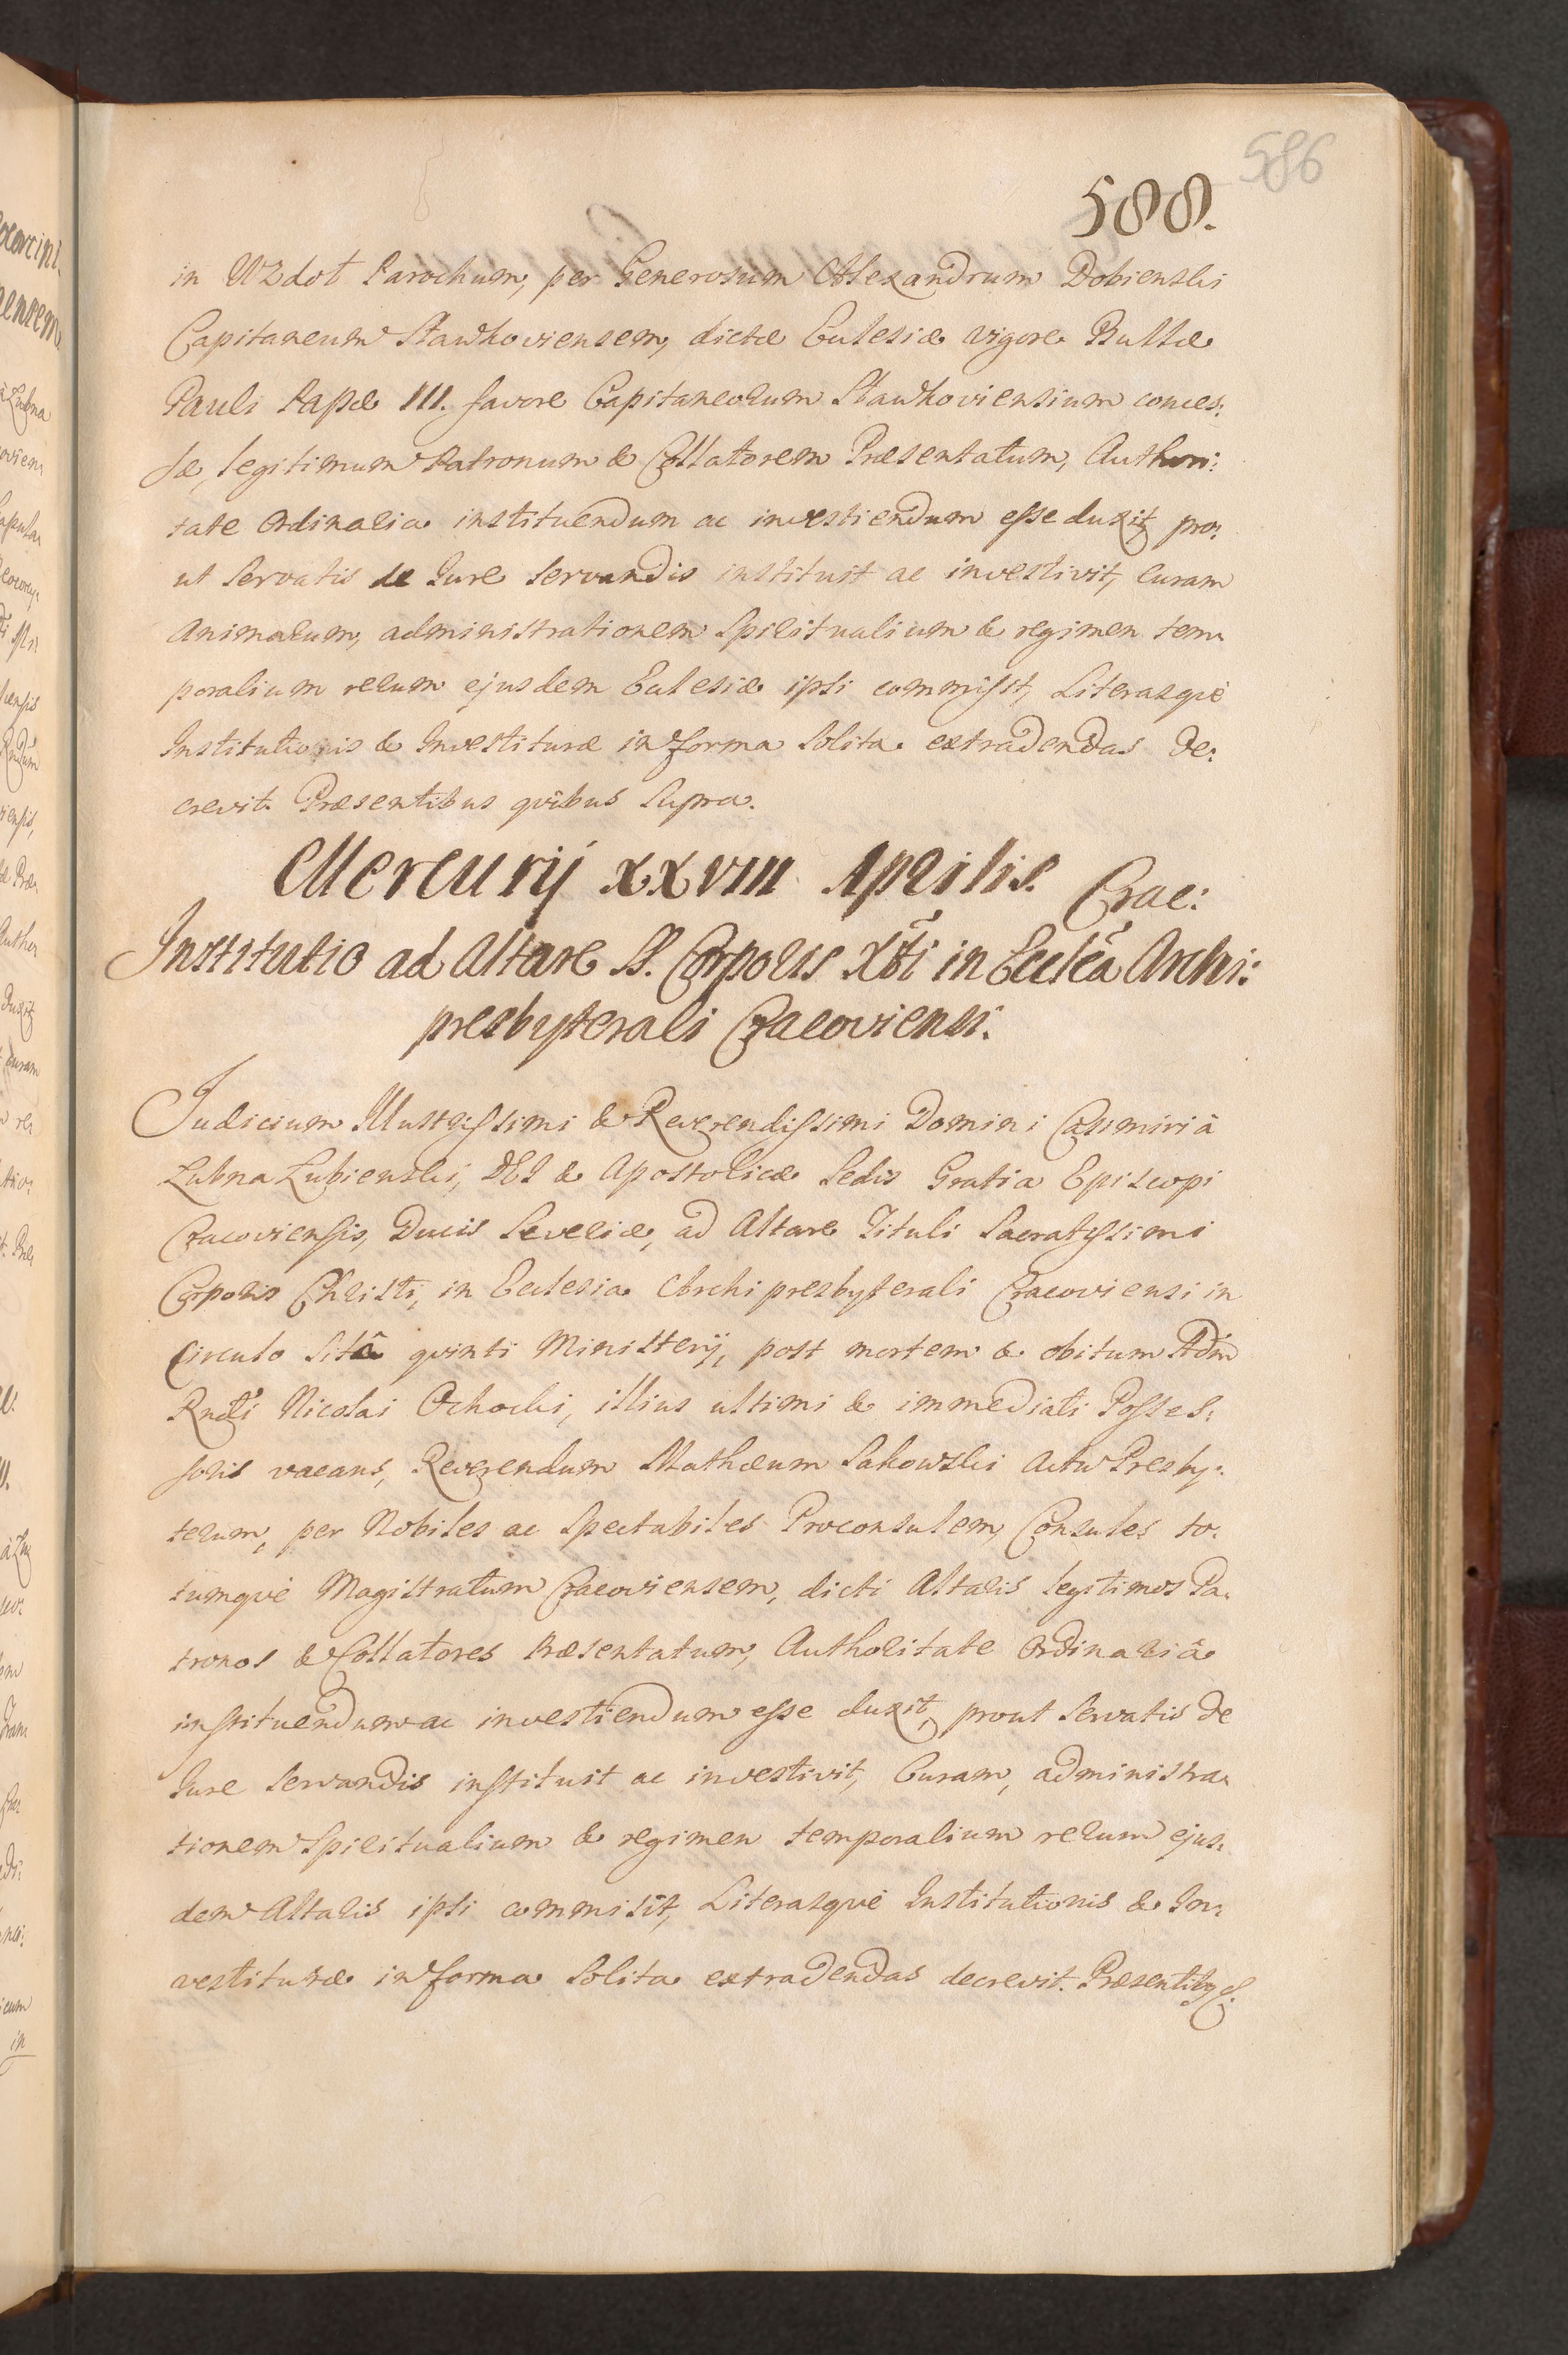 586
588.
in Uzdot Parochum, per Generosum Alexandrum Dobienski
Capitaneum Slawkoviensem, dictæ Eclesiæ vigore Bullæ
Pauli Papæ III. favore Capitaneorum Slawkoviensium conces:
sæ, legitimum Patronum & Collatorem Præsentatum, Authori:
tate Ordinaria instituendum ac investiendum esse duxit, pro:
ut servatis de Jure servandis instituit ac investivit, curam
Animarum, administrationem Spiritualium & regimen tem:
poralium rerum ejusdem Eclesiæ ipsi commisit, Literasquè
Institutionis & Investituræ in forma solita extradendas de:
crevit. Præsentibus quibus supra.
Mercurij XXVIII Aprilis. Crac:
Institutio ad Altare SS. Corporis Xti in Eccleã Archi:
presbyterali Cracoviensi.
Judicium Illustrissimi & Reverendissimi Domini Casimiri à
Lubna Lubienski, DEI & Apostolicæ Sedis Gratia Episcopi
Cracoviensis, Ducis Severiæ, ad Altare Tituli Sacratissimi
Corporis Christi, in Ecclesia Archipresbyterali Cracoviensi in
Circulo sitâ quinti Ministerij, post mortem & obitum Adm
Rndi Nicolai Ochocki, illius ultimi & immediati Posses:
soris vacans, Reverendum Mathæum Sakowski Actu Presby:
terum, per Nobiles ac Spectabiles Proconsulem, Consules to:
tumquè Magistratum Cracoviensem, dicti Altaris legitimos Pa:
tronos & Collatores Præsentatum, Authoritate Ordinariâ
instituendum ac investiendum esse duxit, prout servatis de
Jure servandis instituit ac investivit, Curam, administra:
tionem Spiritualium & regimen temporalium rerum ejus:
dem Altaris ipsi commisit, Literasquè Institutionis & In:
vestituræ in forma solita extradendas decrevit. Præsentibg